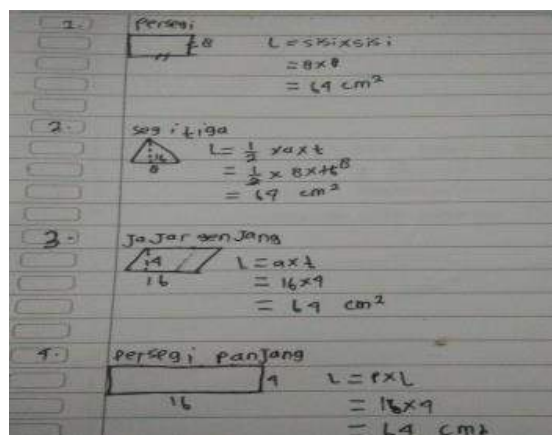 1. persegi
8 L = sisi x sisi
= 8 x 8
= 64 cm²
2. segitiga
16 L = 1/2 x a x t
8 = 1/2 x 8 x 16 8
= 64 cm²
3. Jajar genjang
4 L = a x t
16 = 16 x 4
= 64 cm²
4. persegi panjang
4 L = P x L
16 = 16 x 4
= 64 cm2